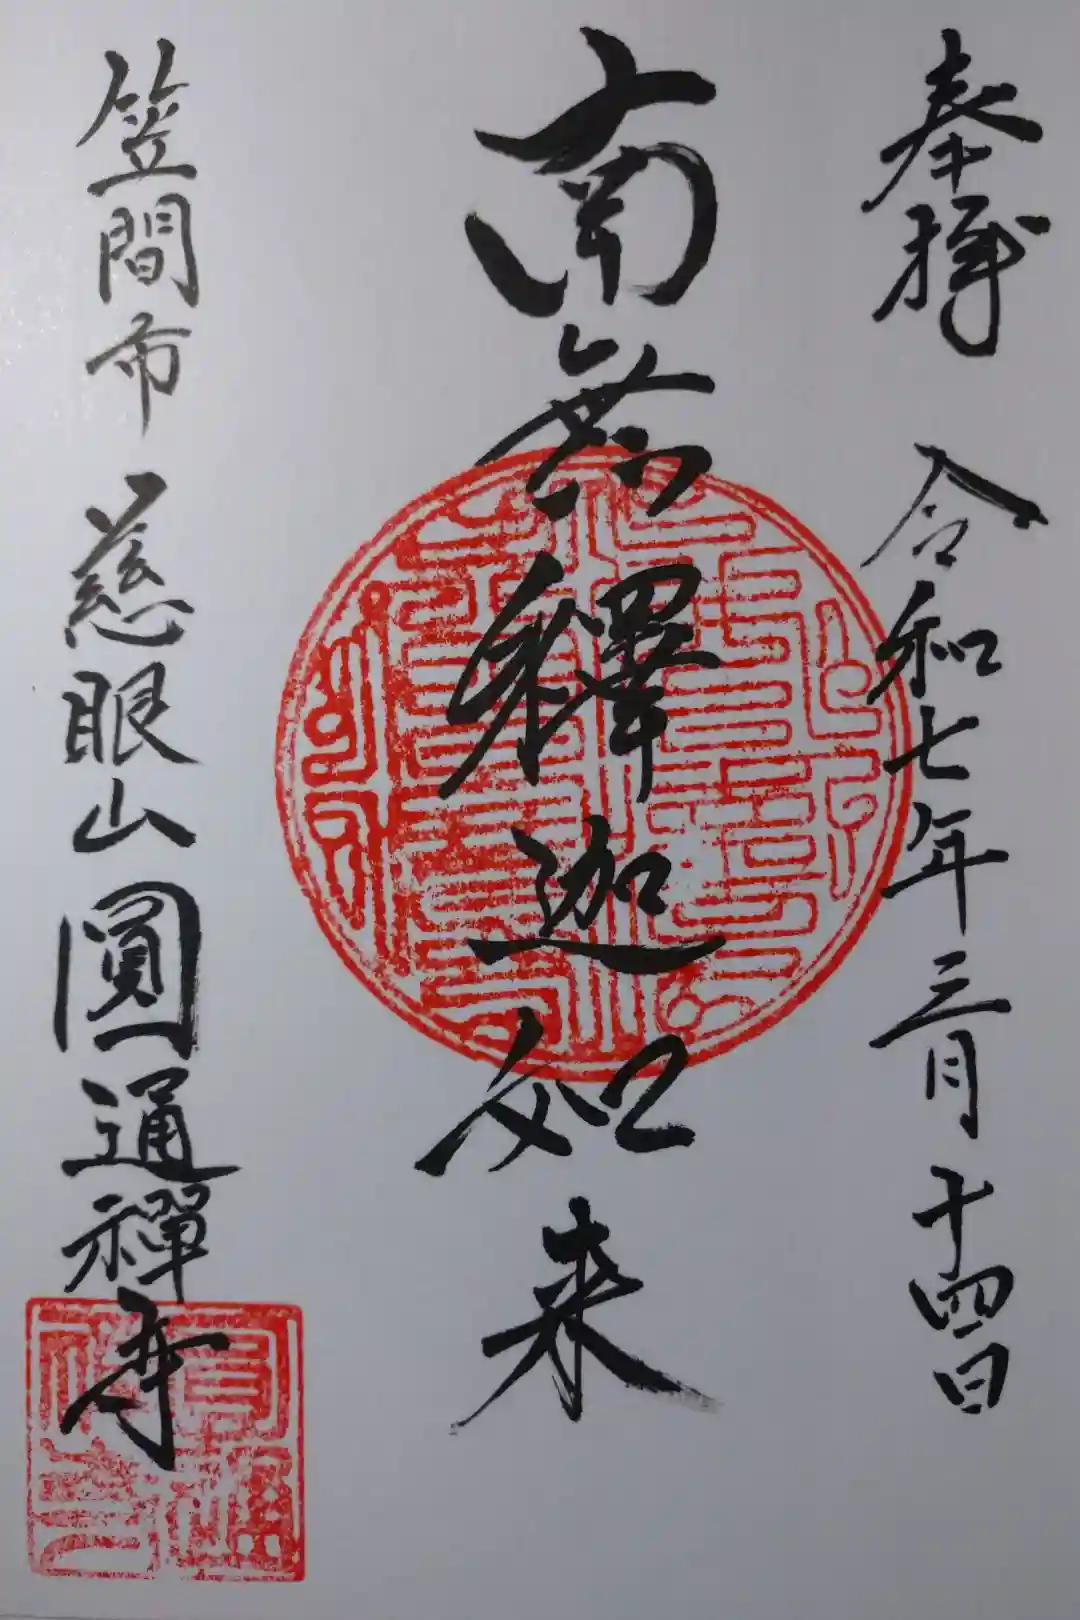 奉拝 令和七年三月十四日
南無釋迦如来
笠間市 慈眼山 圓通禪寺